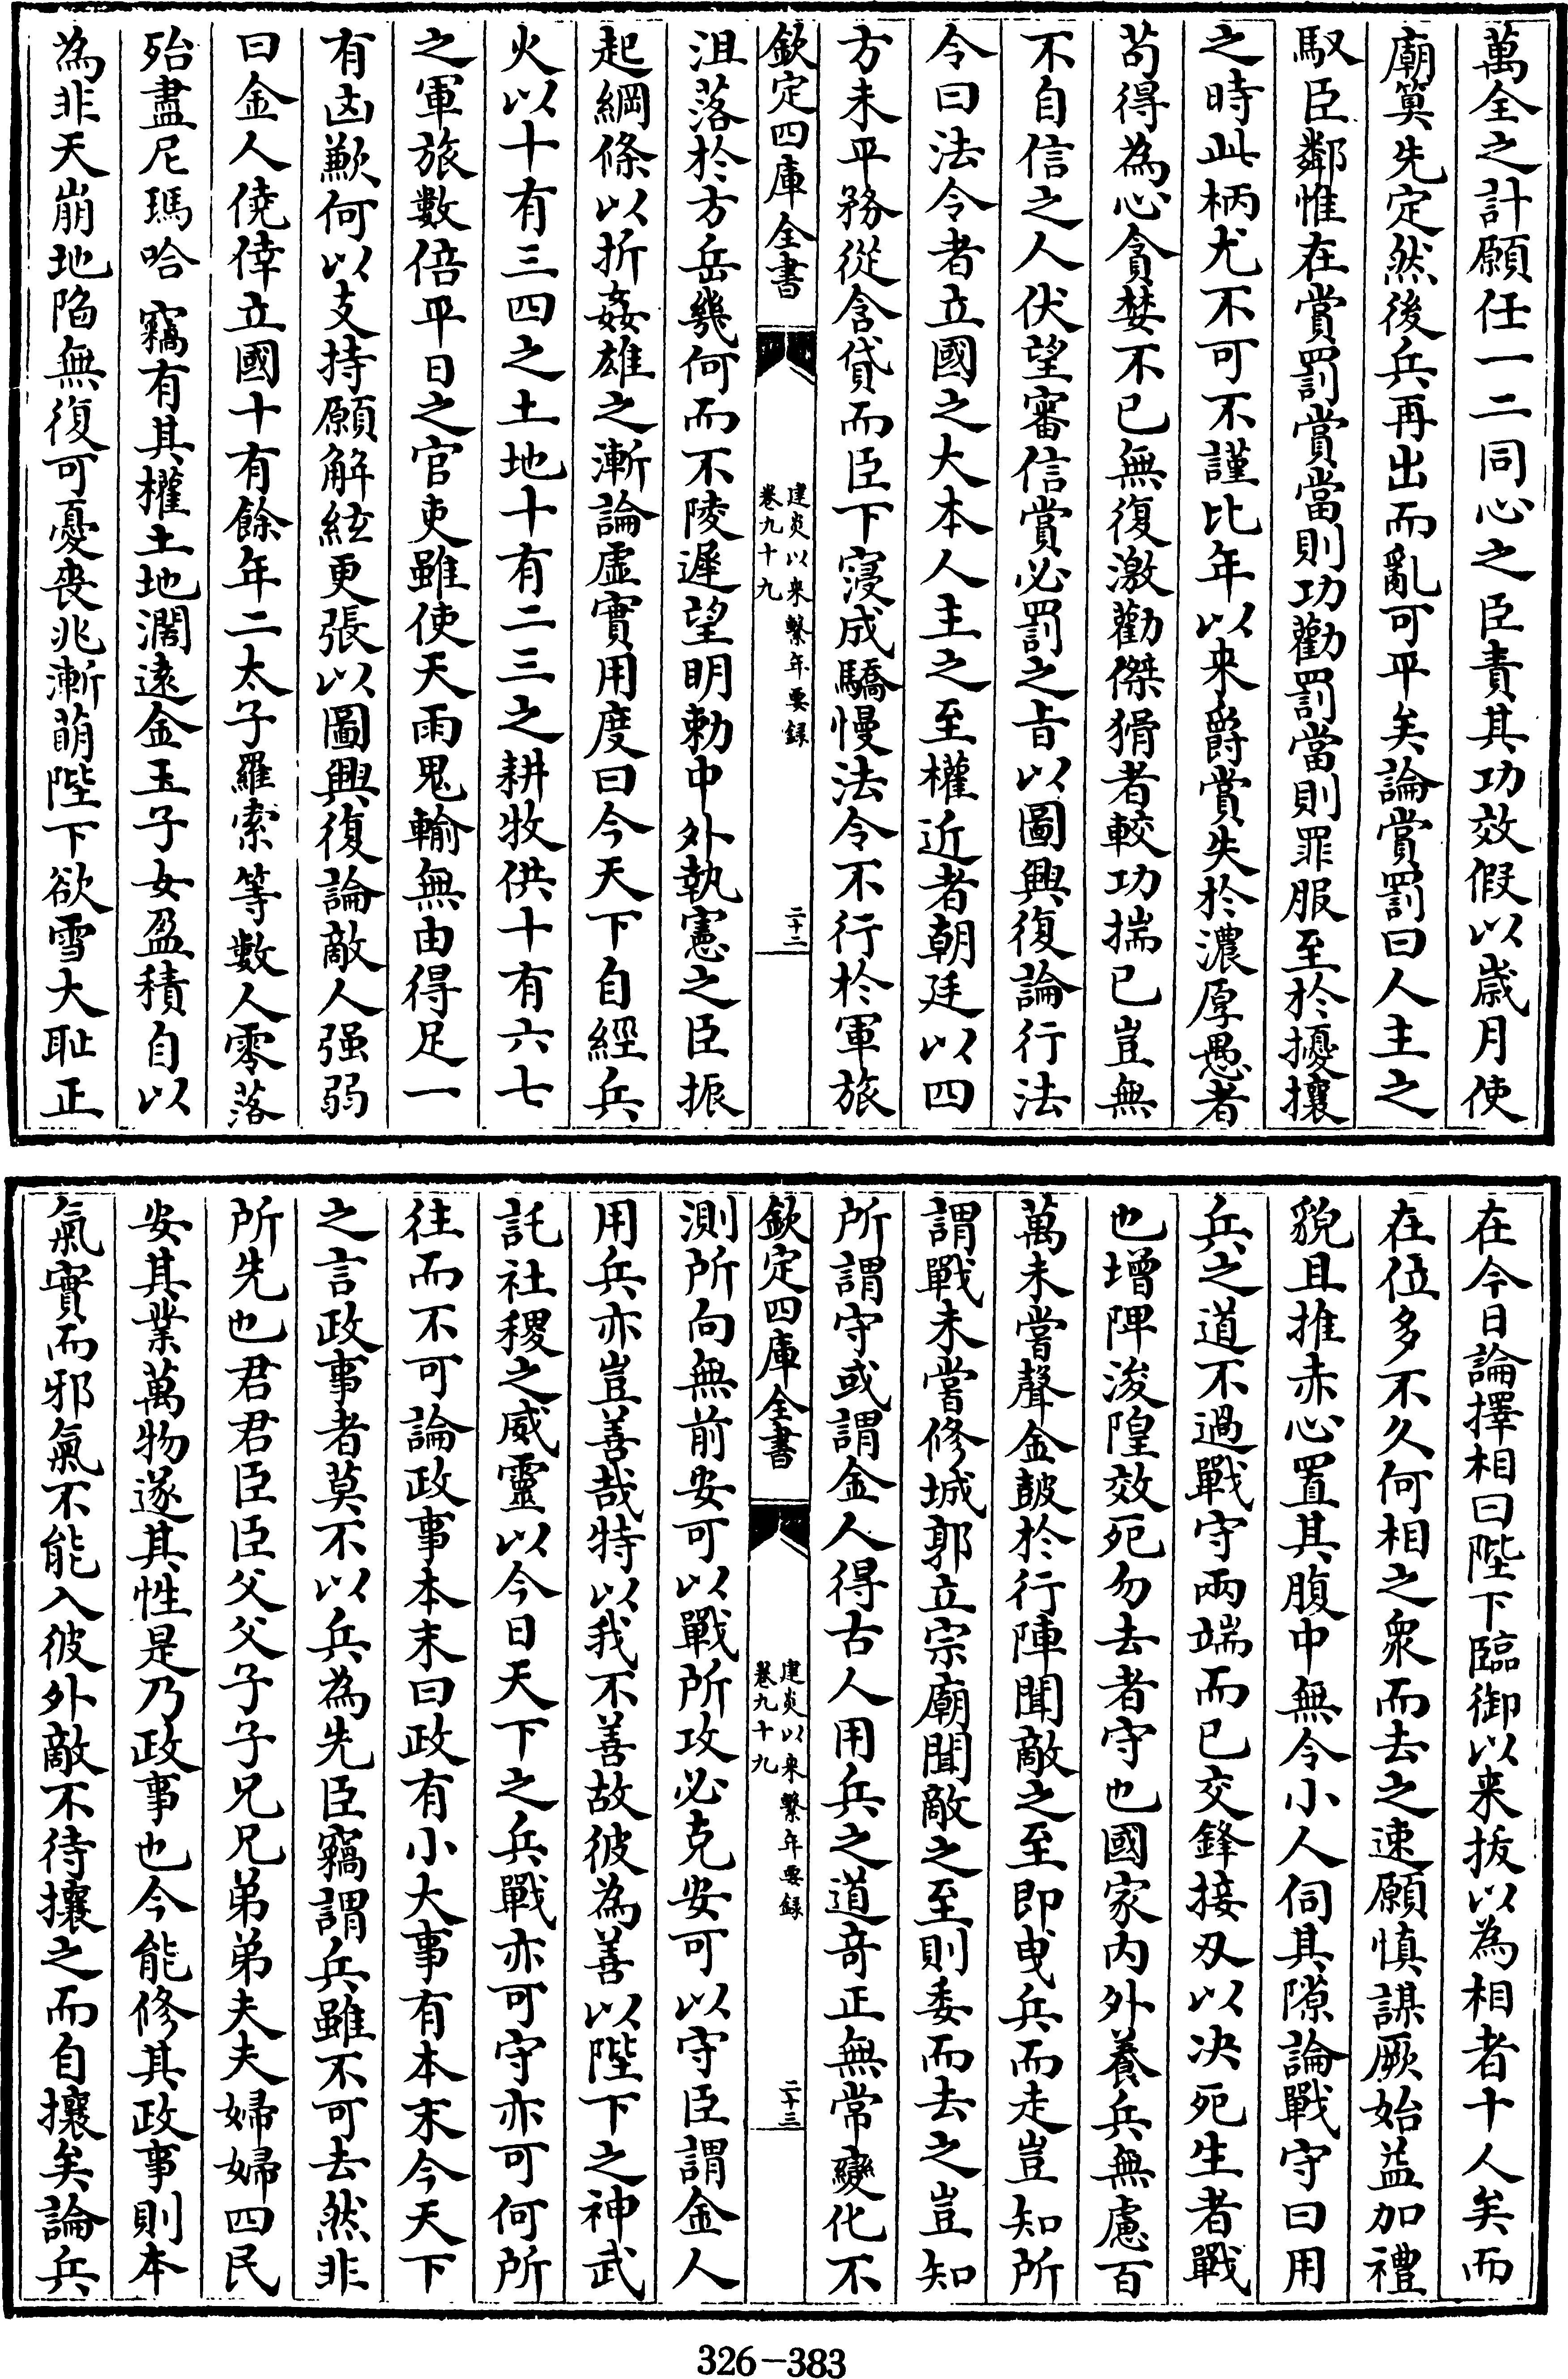 萬全之計願任一二同心之臣責其功效假以歲月使
廟筭先定然後兵再出而亂可平矣論賞罰曰人主之
馭臣鄰惟在賞罰賞當則功勸罰當則罪服至於擾攘
之時此柄尤不可不謹比年以来爵賞失於濃厚愚者
苟得為心貪婪不已無復激勸傑猾者較功揣已豈無
不自信之人伏望審信賞必罰之㫖以圖興復論行法
令曰法令者立國之大本人主之至權近者朝廷以四
方未平務從含貸而臣下寖成驕慢法令不行於軍旅
欽定四庫全書
建炎以来繫年要録
卷九十九
二十二
沮落於方岳幾何而不陵遲望明勅中外執憲之臣振
起綱條以折姦雄之漸論虛實用度曰今天下自經兵
火以十有三四之土地十有二三之耕牧供十有六七
之軍旅數倍平日之官吏雖使天雨鬼輸無由得足一
有凶歉何以支持願解絃更張以圖興復論敵人强弱
曰金人僥倖立國十有餘年二太子羅索等數人零落
殆盡尼瑪哈竊有其權土地濶遠金玉子女盈積自以
為非天崩地陷無復可憂喪兆漸萌陛下欲雪大恥正
在今日論擇相曰陛下臨御以来拔以為相者十人矣而
在位多不久何相之衆而去之速願慎謀厥始益加禮
貌且推赤心置其腹中無令小人伺其隙論戰守曰用
兵之道不過戰守兩端而已交鋒接刃以決死生者戰
也增陴浚隍效死勿去者守也國家内外養兵無慮百
萬未嘗聲金鼓於行陣聞敵之至即曵兵而走豈知所
謂戰未嘗修城郭立宗廟聞敵之至則委而去之豈知
所謂守或謂金人得古人用兵之道竒正無常變化不
欽定四庫全書
建炎以来繫年要録
卷九十九
二十三
測所向無前安可以戰所攻必克安可以守臣謂金人
用兵亦豈善哉特以我不善故彼為善以陛下之神武
託社稷之威靈以今日天下之兵戰亦可守亦可何所
往而不可論政事本末曰政有小大事有本末今天下
之言政事者莫不以兵為先臣竊謂兵雖不可去然非
所先也君君臣臣父父子子兄兄弟弟夫夫婦婦四民
安其業萬物遂其性是乃政事也今能修其政事則本
氣實而邪氣不能入彼外敵不待攘之而自攘矣論兵
326-383